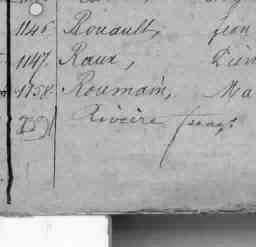 1145. Rouault, Jean
1147. Raux, Pier
1158. Roumain, Ma
Rivière franç.